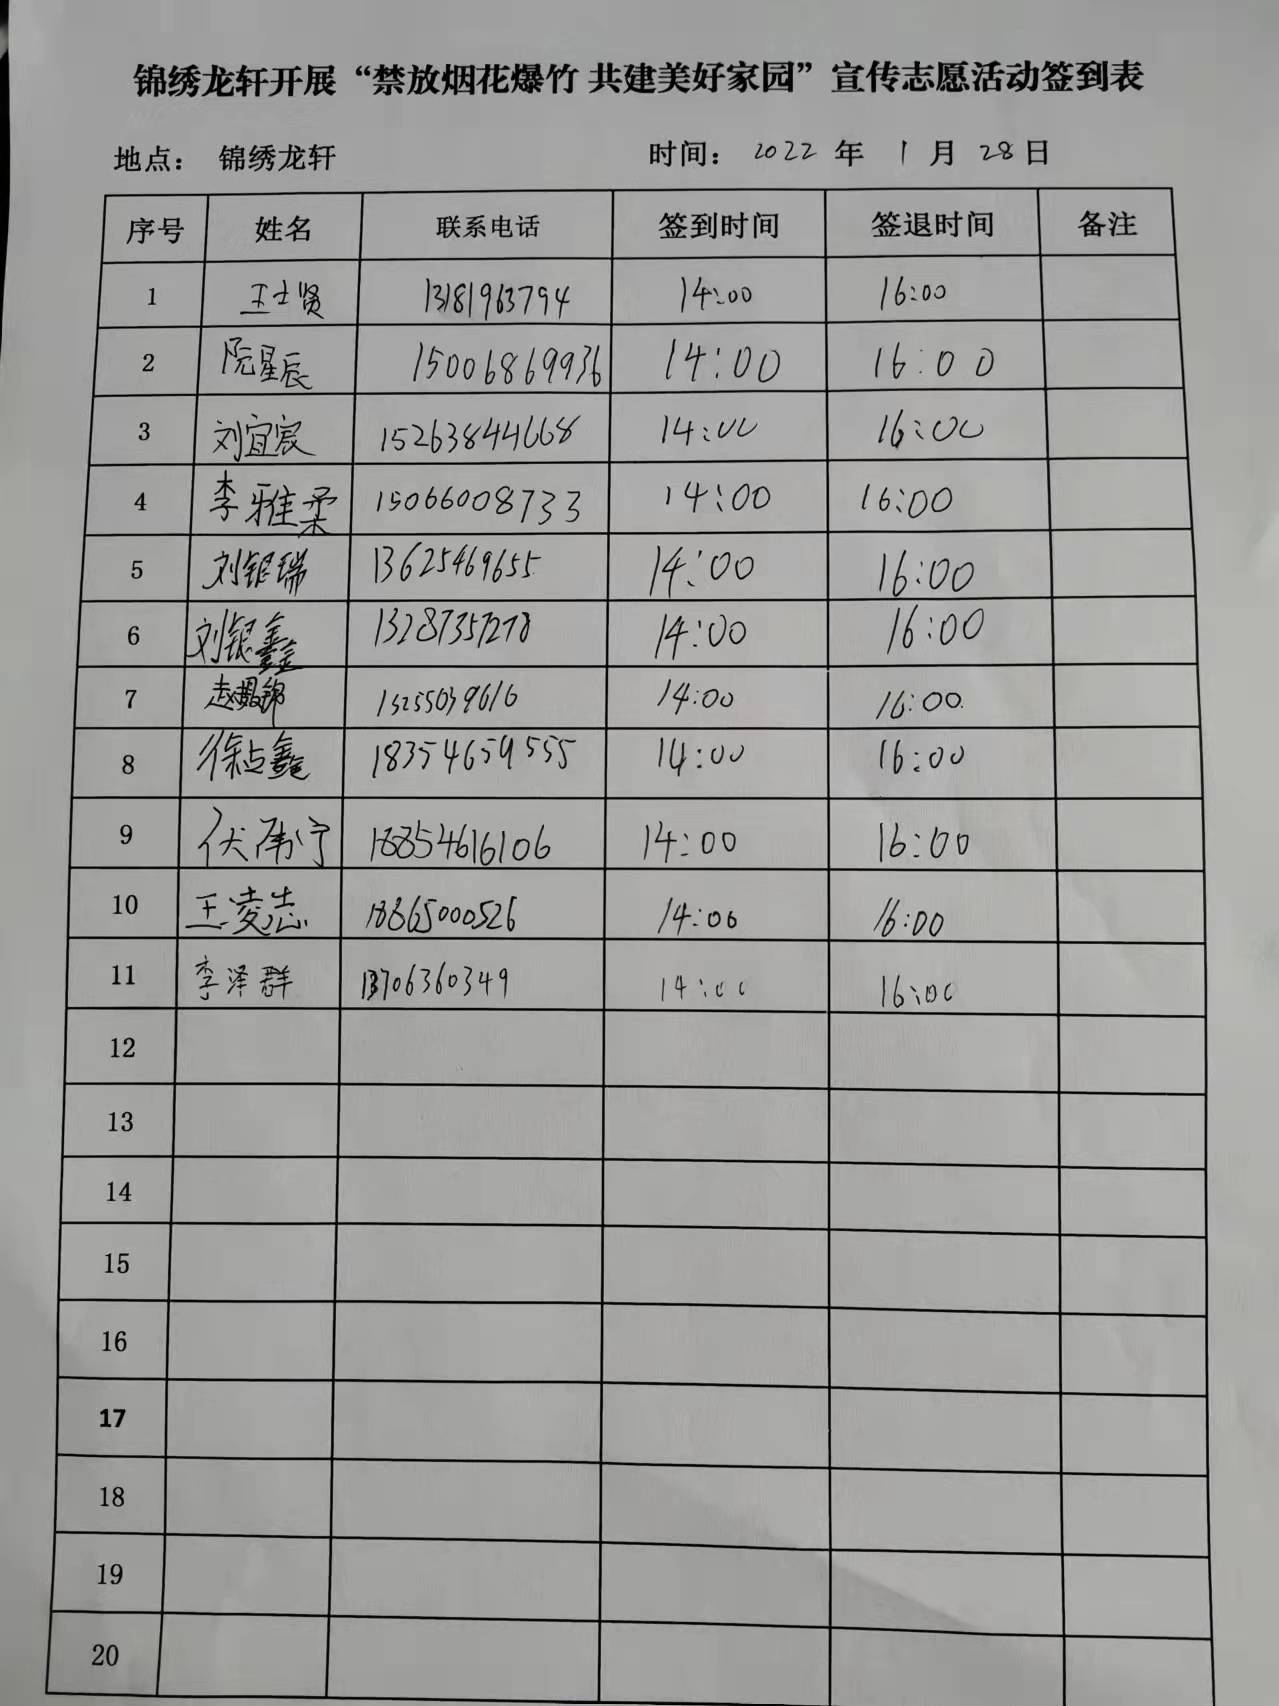 锦绣龙轩开展“禁放烟花爆竹 共建美好家园”宣传志愿活动签到表
地点： 锦绣龙轩 时间： 2022 年 1 月 28 日
序号 姓名 联系电话 签到时间 签退时间 备注
1 王士贤 13181963794 14:00 16:00
2 阮星辰 15006869936 14:00 16:00
3 刘宜宸 15263844668 14:00 16:00
4 李雅柔 15066008733 14:00 16:00
5 刘银瑞 13625469655 14:00 16:00
6 刘银鑫 13287357278 14:00 16:00
7 13255039616 14:00 16:00
8 徐占鑫 18354659555 14:00 16:00
9 伏宁 18854616106 14:00 16:00
10 王凌志 18865000526 14:00 16:00
11 李泽群 13706360349 14:00 16:00
12
13
14
15
16
17
18
19
20